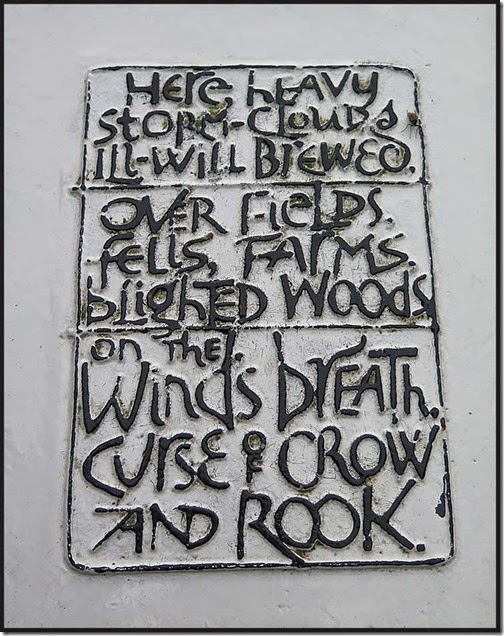 Here heavy
storm-clouds
ill-will brewed.
over fields.
fells, farms.
blighted woods
on the.
wind's breath.
curse of crow
and rook.